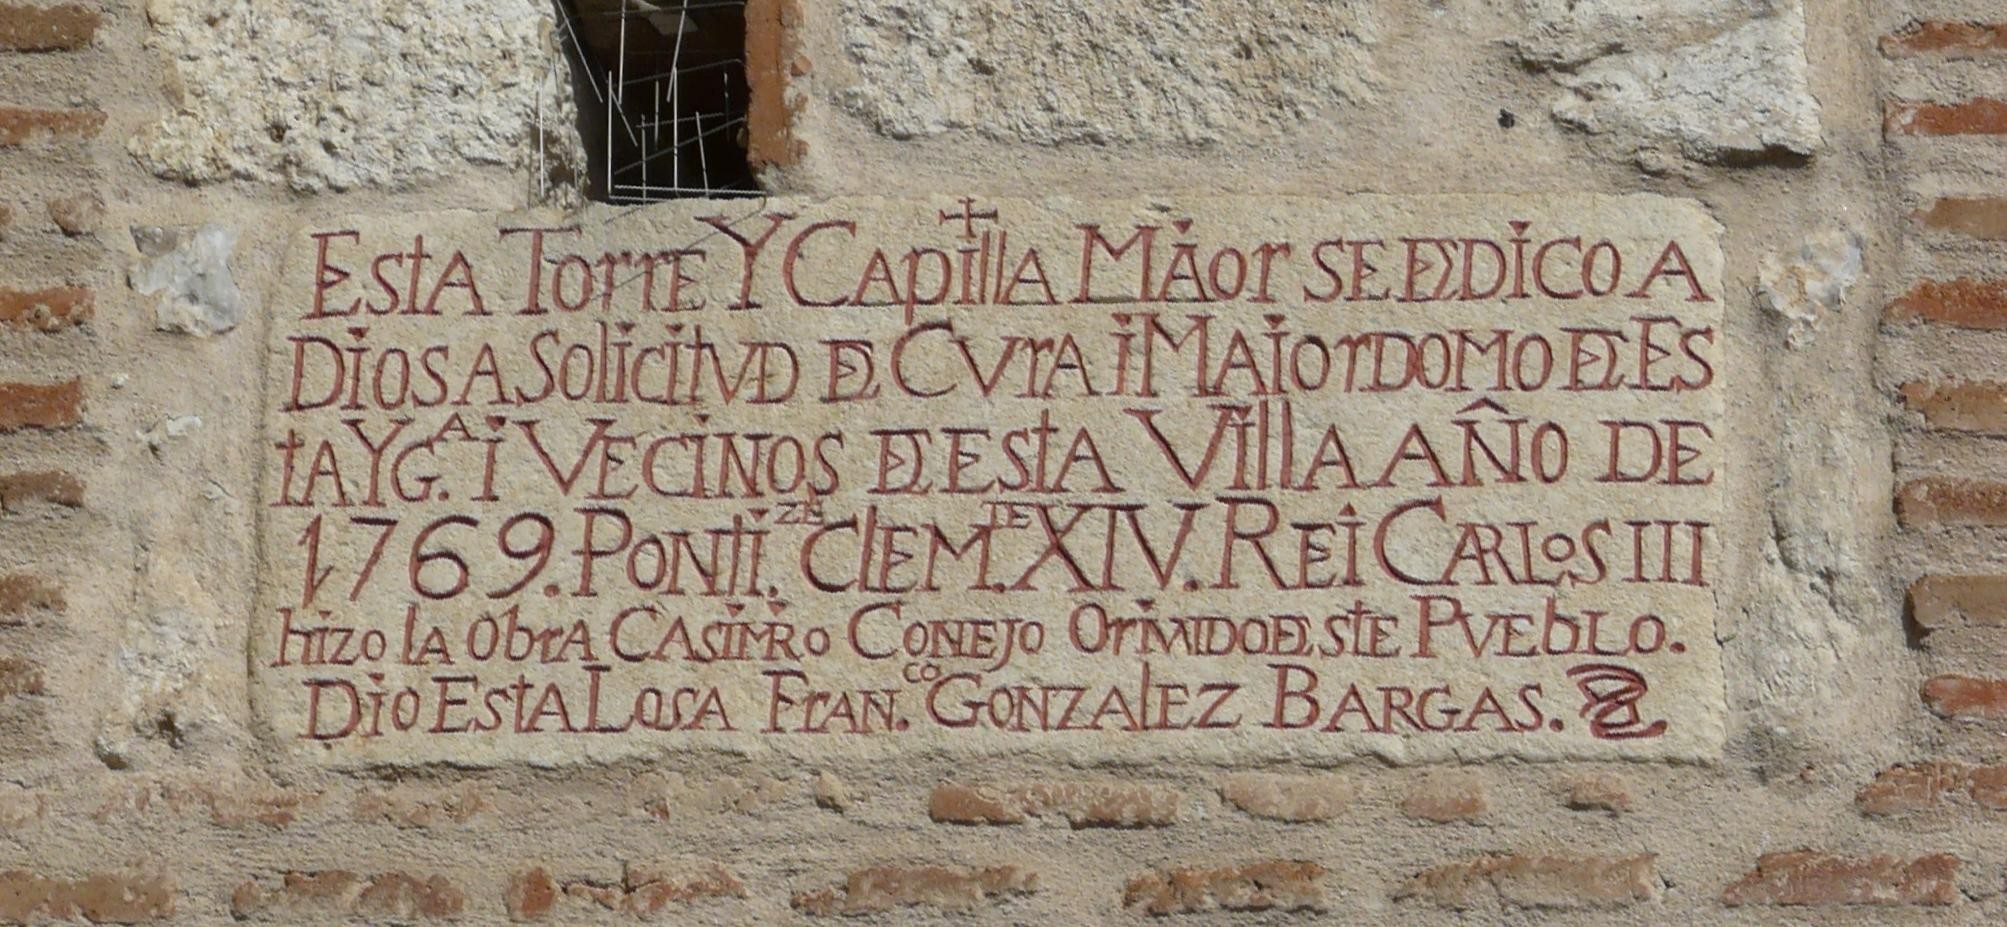 ESTA TORRE Y CAPILLA MAOR SE DEDICO A
DIOS A SOLICITVD DEL CVRA i MAIORDOMO DE ES
tA YG.A i VECINOS DE ESTA VILLA AÑO DE
1769. PONTI.ZE CLEM.TE XIV. REI CARLOS III
hizo LA ObRA CASIMIRO CONEJO ORIVNDO DE ESTE PVEbLO.
DIO ESTA LOSA FRAN.CO GONZALEZ BARGAS.